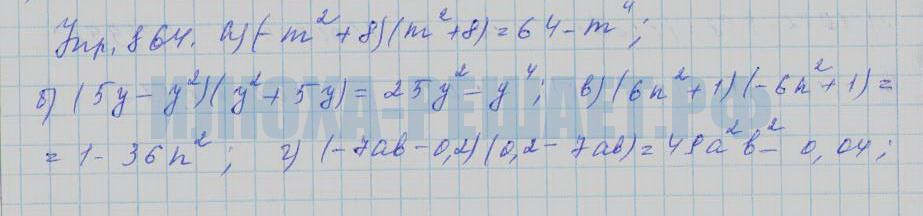 Упр. 864. а) (-m²+8)(m²+8)=64-m⁴;
б) (5y-y²)(y²+5y)=25y²-y⁴; в) (6n²+1)(-6n²+1)=
=1-36n²; г) (-7ab-0,2)(0,2-7ab)=49a²b²-0,04;
ИЛЮХА-РЕШАЕТ.РФ